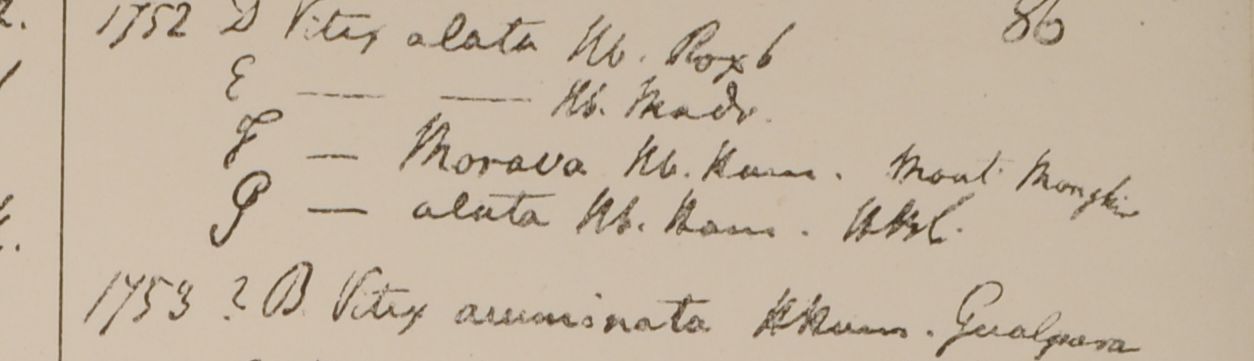 1752 D Vitex alata Hb. Roxb 86
E — — Hb. Madr.
F — Morava Hb. Ham. Mont
G — alata Hb. Ham. HBC.
1753 ? B Vitex acuminata HHam. Gualpara